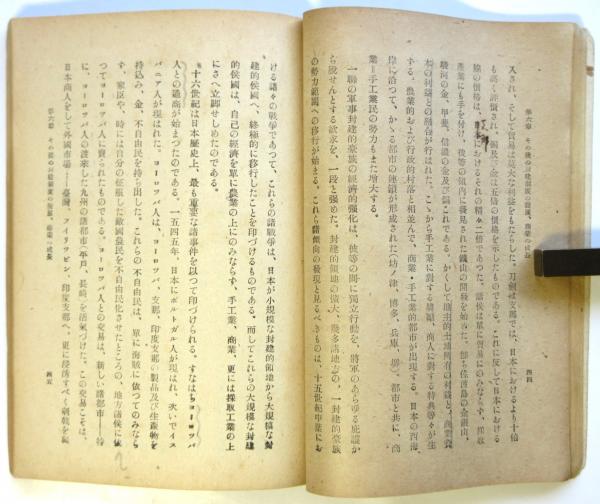 第六章 その後の封建制度の發展、商業の成長 四四
入され、そして貿易は莫大な利益をもたらした。刀劍は支那では、日本におけるより十倍
も高く評價され、銅及び金は五倍の價格を示したものである。これに反して日本における
綿の價格は、支那におけるそれの精々二倍であつた。諸侯は單に貿易にのみならず、採取
產業にも手を付け、彼等の領內に發見された鑛山の開發を始めた。卽ち佐渡島の金銀山、
駿河の金、甲斐、信濃の金及び銅これである。かくして封建的土地所有の利益と、商業資
本の利益との融合が行はれた。こゝから手工業に對する後援、商人に對する特典等々が生
ずる。農業的および行政的村落と相並んで、商業・手工業的都市が出現する。日本の西海
岸に沿つて、かゝる都市の連鎖が形成された（坊ノ津、博多、兵庫、堺）、都市と共に、商
業＝手工業民の勢力もまた增大する。
一聯の軍事封建的豪族の經濟的强化は、彼等の間に獨立行動を、將軍のあらゆる庇護か
ら脫せんとする欲求を、一段と强めた。封建的領地の擴大、幾多諸地方の、一封建的豪族
の勢力範圍への移行が始まる。これら諸傾向の發現と見るべきものは、十五世紀中葉にお
ける諸々の戰爭であつて、これらの諸戰爭は、日本が小規模な封建的領地から大規模な封
建的侯國へ、終極的に移行したことを印づけるものである。而してこれらの大規模な封建
的侯國は、自己の經濟を單に農業の上にのみならず、手工業、商業、更には採取工業の上
にさへ立脚せしめたのである。
十六世紀は日本歷史上、最も重要な諸事件を以つて印づけられる。すなはちヨーロッパ
人との通商が始まつたのである。一五四二年、日本にポルトガル人が現はれ、次いでイス
パニア人が現はれた。ヨーロッパ人は、ヨーロッパ、支那、印度支那の製品及び生產物を
持込み、金、不自由民を持ち出した。これらの不自由民は、單に海賊に依つてのみなら
ず、家臣や、時には自分の征服した敵國農民を不自由民化させたところの、地方諸侯に依
つてヨーロッパ人に賣られたものである。ヨーロッパ人との交易は、新しい諸都市――特
に、ヨーロッパ人の渡來した九州の諸都市（平戶、長崎）を活氣づけた。この交易こそは、
日本商人をして外國市場――臺灣、フイリッピン、印度支那へ、更に浸透すべく刺戟を與
第六章 その後の封建制度の發展、商業の成長 四五